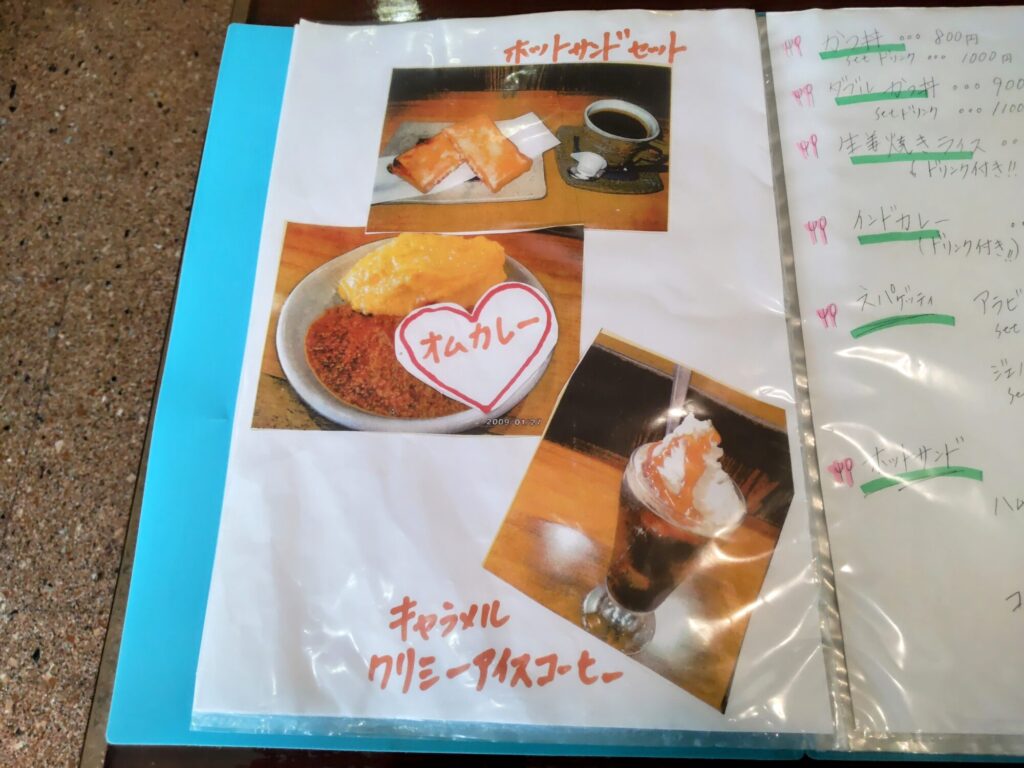 ホットサンドセット
オムカレー
2009/01/27
キャラメル
クリーミーアイスコーヒー
かつ丼 ••• 800円
setドリンク ••• 1000円
ダブルかつ丼 ••• 900
setドリンク ••• 1100
生姜焼きライス ••
ドリンク付き!!
インドカレー ••
(ドリンク付き!!)
スパゲッティ アラビ
set
ジェ
se
ホットサンド
ハム
コ